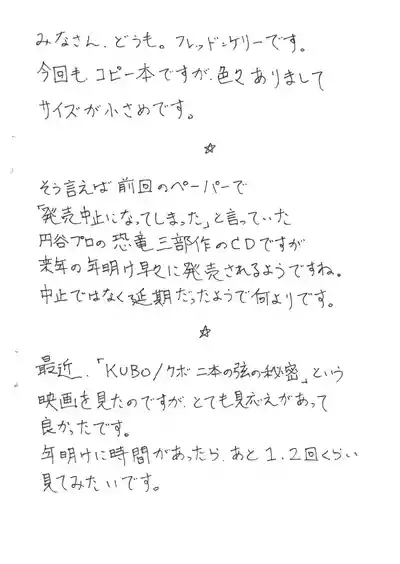 みなさん、どうも。フレッド=ケリーです。
今回も、コピー本ですが、色々ありまして
サイズが小さめです。
☆
そう言えば前回のペーパーで
「発売中止になってしまった」と言っていた
円谷プロの恐竜三部作のCDですが
来年の年明け早々に発売されるようですね。
中止ではなく延期だったようで何よりです。
☆
最近、「KUBO/クボ 二本の弦の秘密」という
映画を見たのですが、とても見応えがあって
良かったです。
年明けに時間があったら、あと1、2回くらい
見てみたいです。